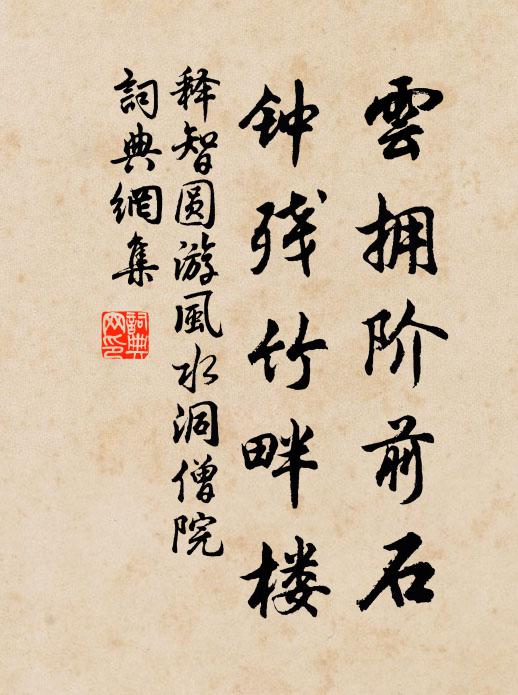 雲拥阶前石
钟残竹畔楼
释智圆游風水洞僧院
詞典網集
詞典网印